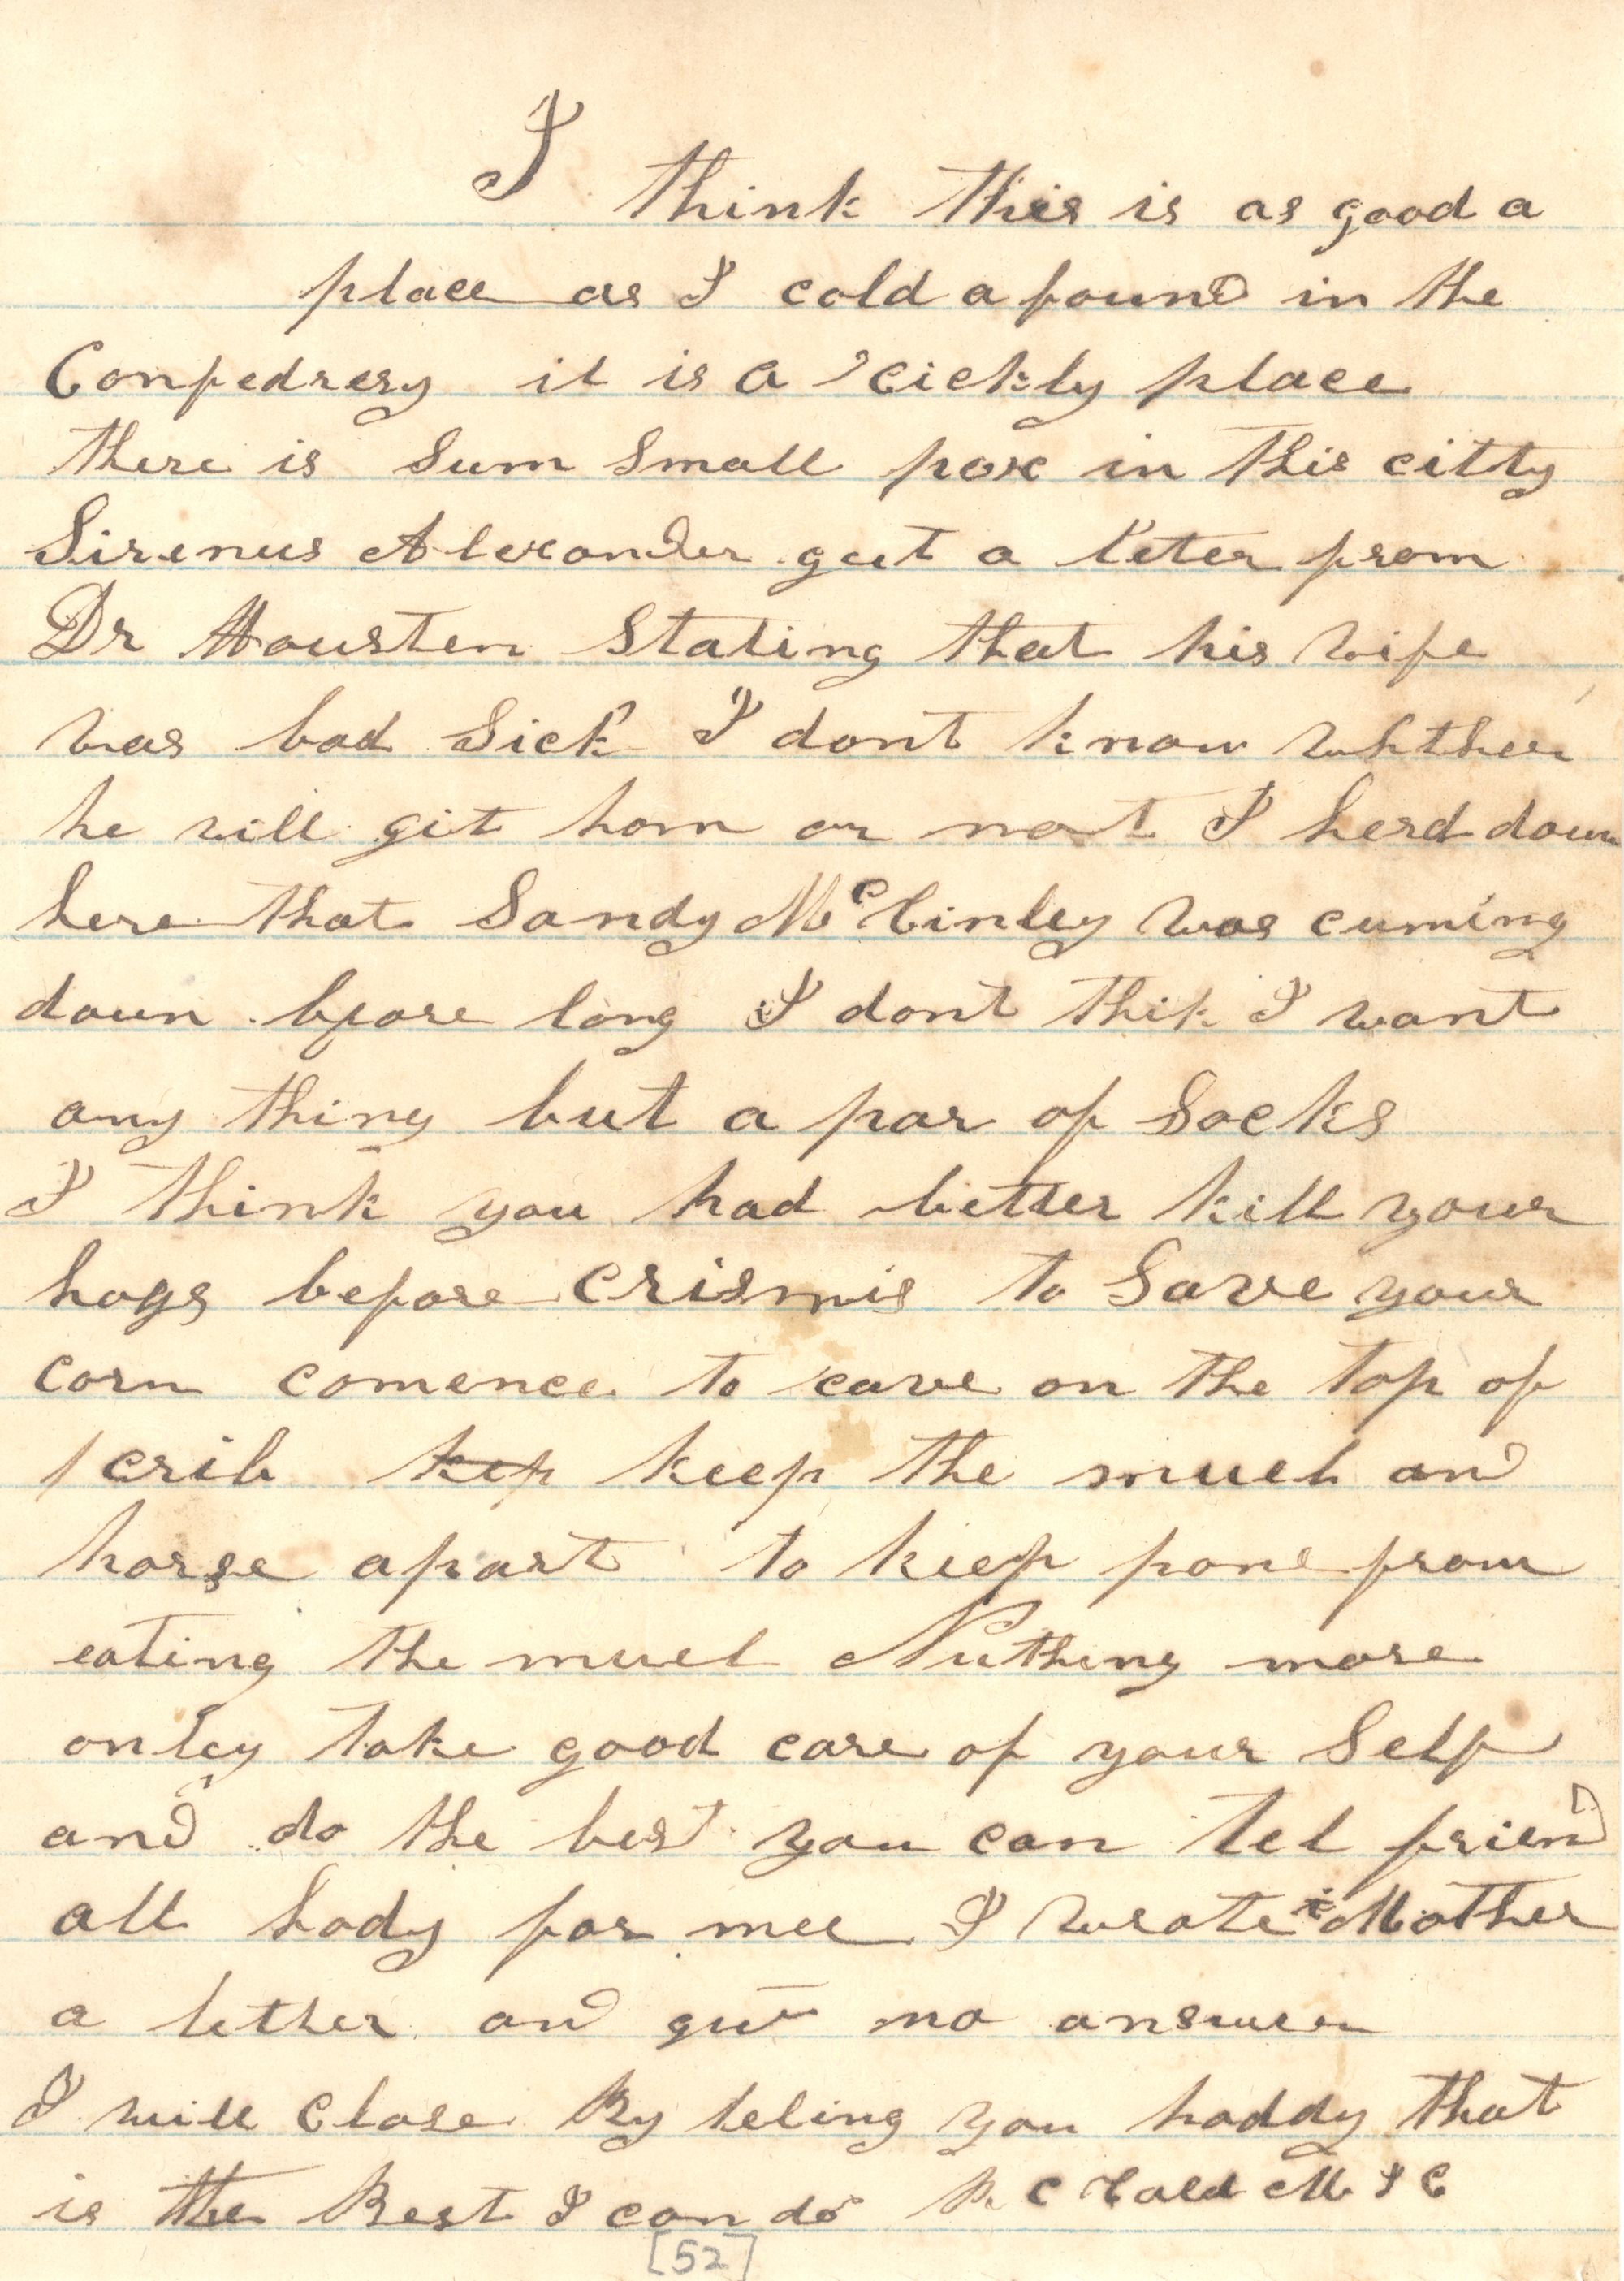 I think this is as good a
place as I cold a found in the
Confedresy it is a cickly place
there is sum Small pox in this citty
Sirenus Alexander gut a leter from
Dr Housten Stating that his wife
was bad Sick I dont know whther
he will git hom or not I herd down
here that Sandy McCinley was cuming
down bfore long I dont thik I want
any thing but a par of Socks
I think you had better kill your
hogs before crismis to Save your
corn comence to eave on the top of
crib kep keep the muel and
horse apart to keep pone from
eating the muel Nuthing more
onley take good care of your Self
and do the best you can tel frien
all hody for mee I wrote Mother
a lether and gut no answer
I will close By teling you hoddy that
is the Best I can do C M I C
[52]